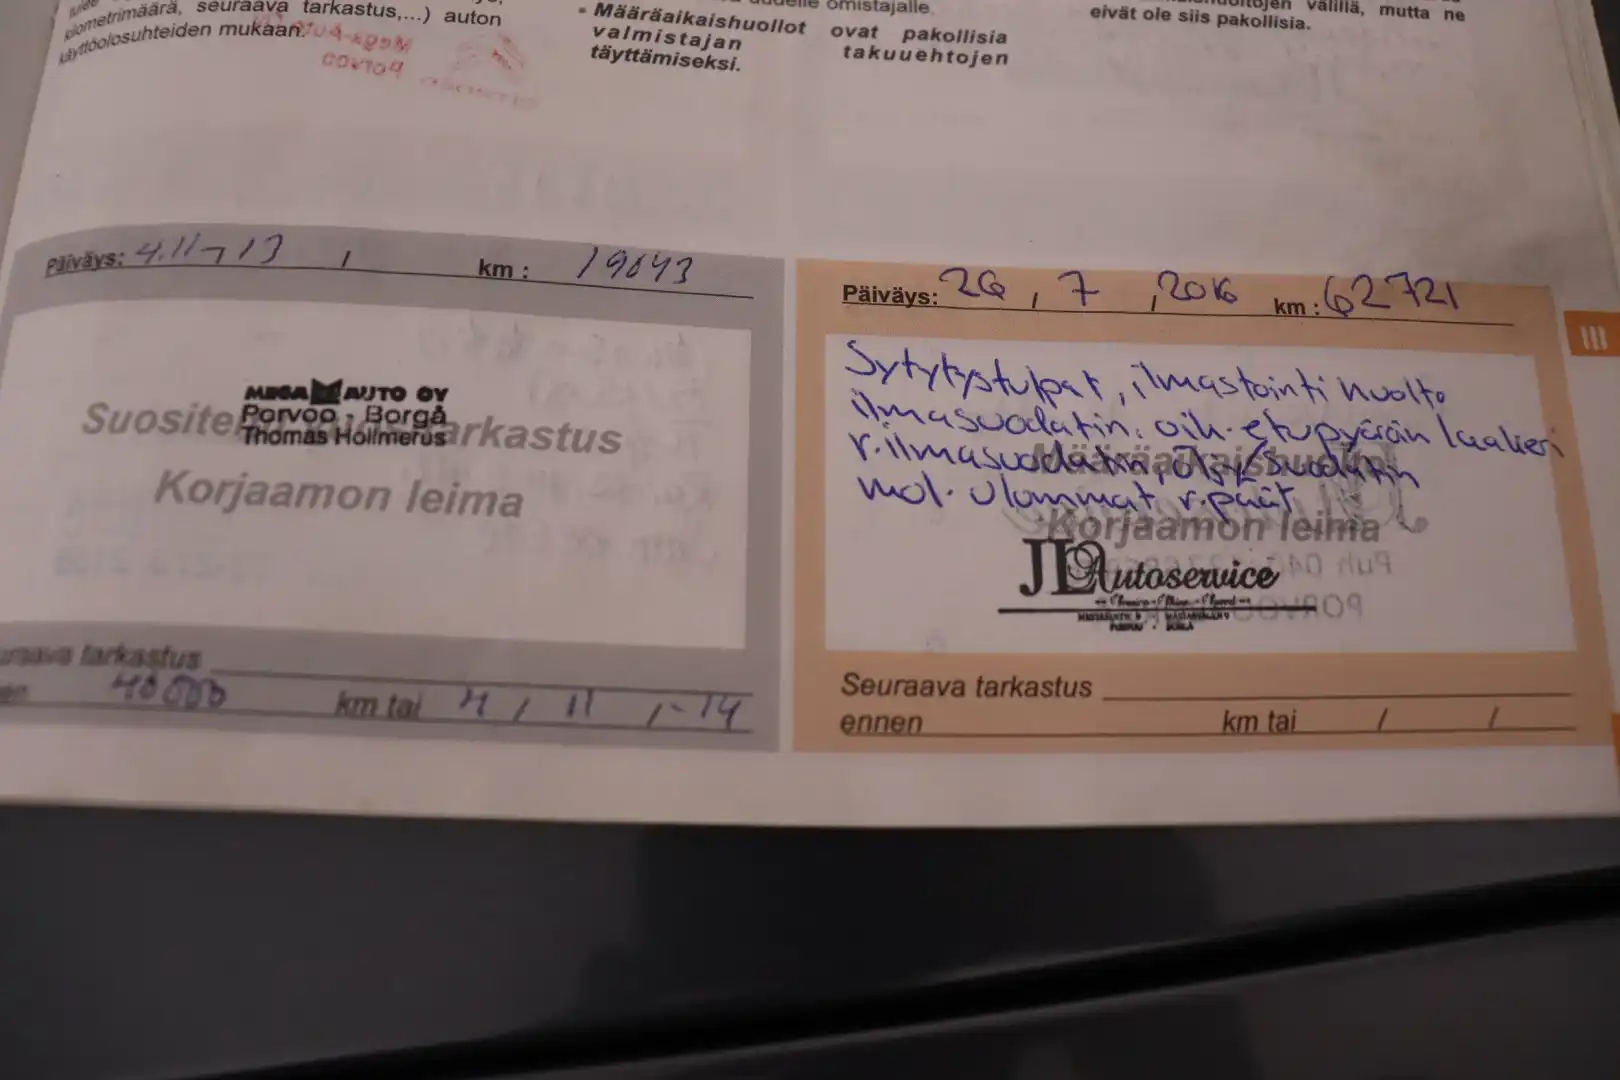 seuraava tarkastus,...) auton
kilometrimäärä,
käyttöolosuhteiden mukaan.
omistajalle.
• Määräaikaishuollot ovat pakollisia
valmistajan takuuehtojen
täyttämiseksi.
välillä, mutta ne
eivät ole siis pakollisia.
Päiväys: 4.11-13 / km :
MEGA AUTO OY
Porvoo - Borgå
Thomas Hollmerus
tarkastus
Korjaamon leima
tarkastus
40000 km tai 4 / 11 / -14
Päiväys: 26 / 7 / 2016 km : 62721
Sytytystulpat, ilmastointi huolto
ilmasuodatin, oik. etupyörän laakeri
r.ilmasuodatin, öljy/suodatin
mol. ulommat r.päät
Määräaikaishuolto
Korjaamon leima
JL Autoservice
Seuraava tarkastus
ennen km tai / /
III